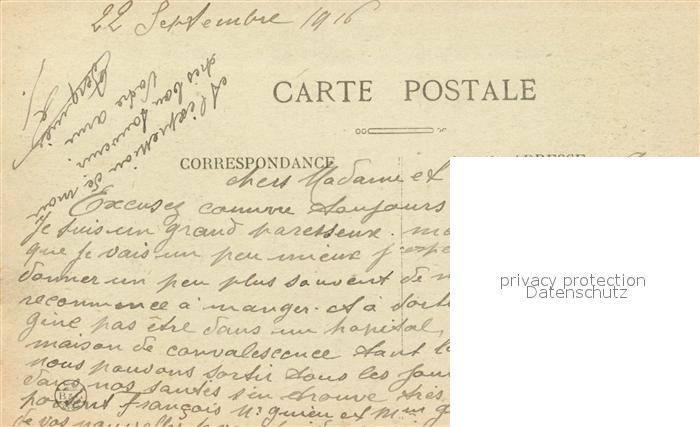 22 Septembre 1916
CARTE POSTALE
CORRESPONDANCE
ADRESSE
chers Madame et
Excusez comme toujours
Je suis un grand paresseux. ma
que je vais un peu mieux j'espe
donner un peu plus souvent de n
recommence à manger. et à sorti
gine pas être dans un hopital,
maison de convalescence tant l
nous pouvons sortir tous les jour
dans nos santés s'en trouve très
portent françois
de vos nouvelles
et l'expression de mon
très bon souvenir
Votre ami
privacy protection
Datenschutz